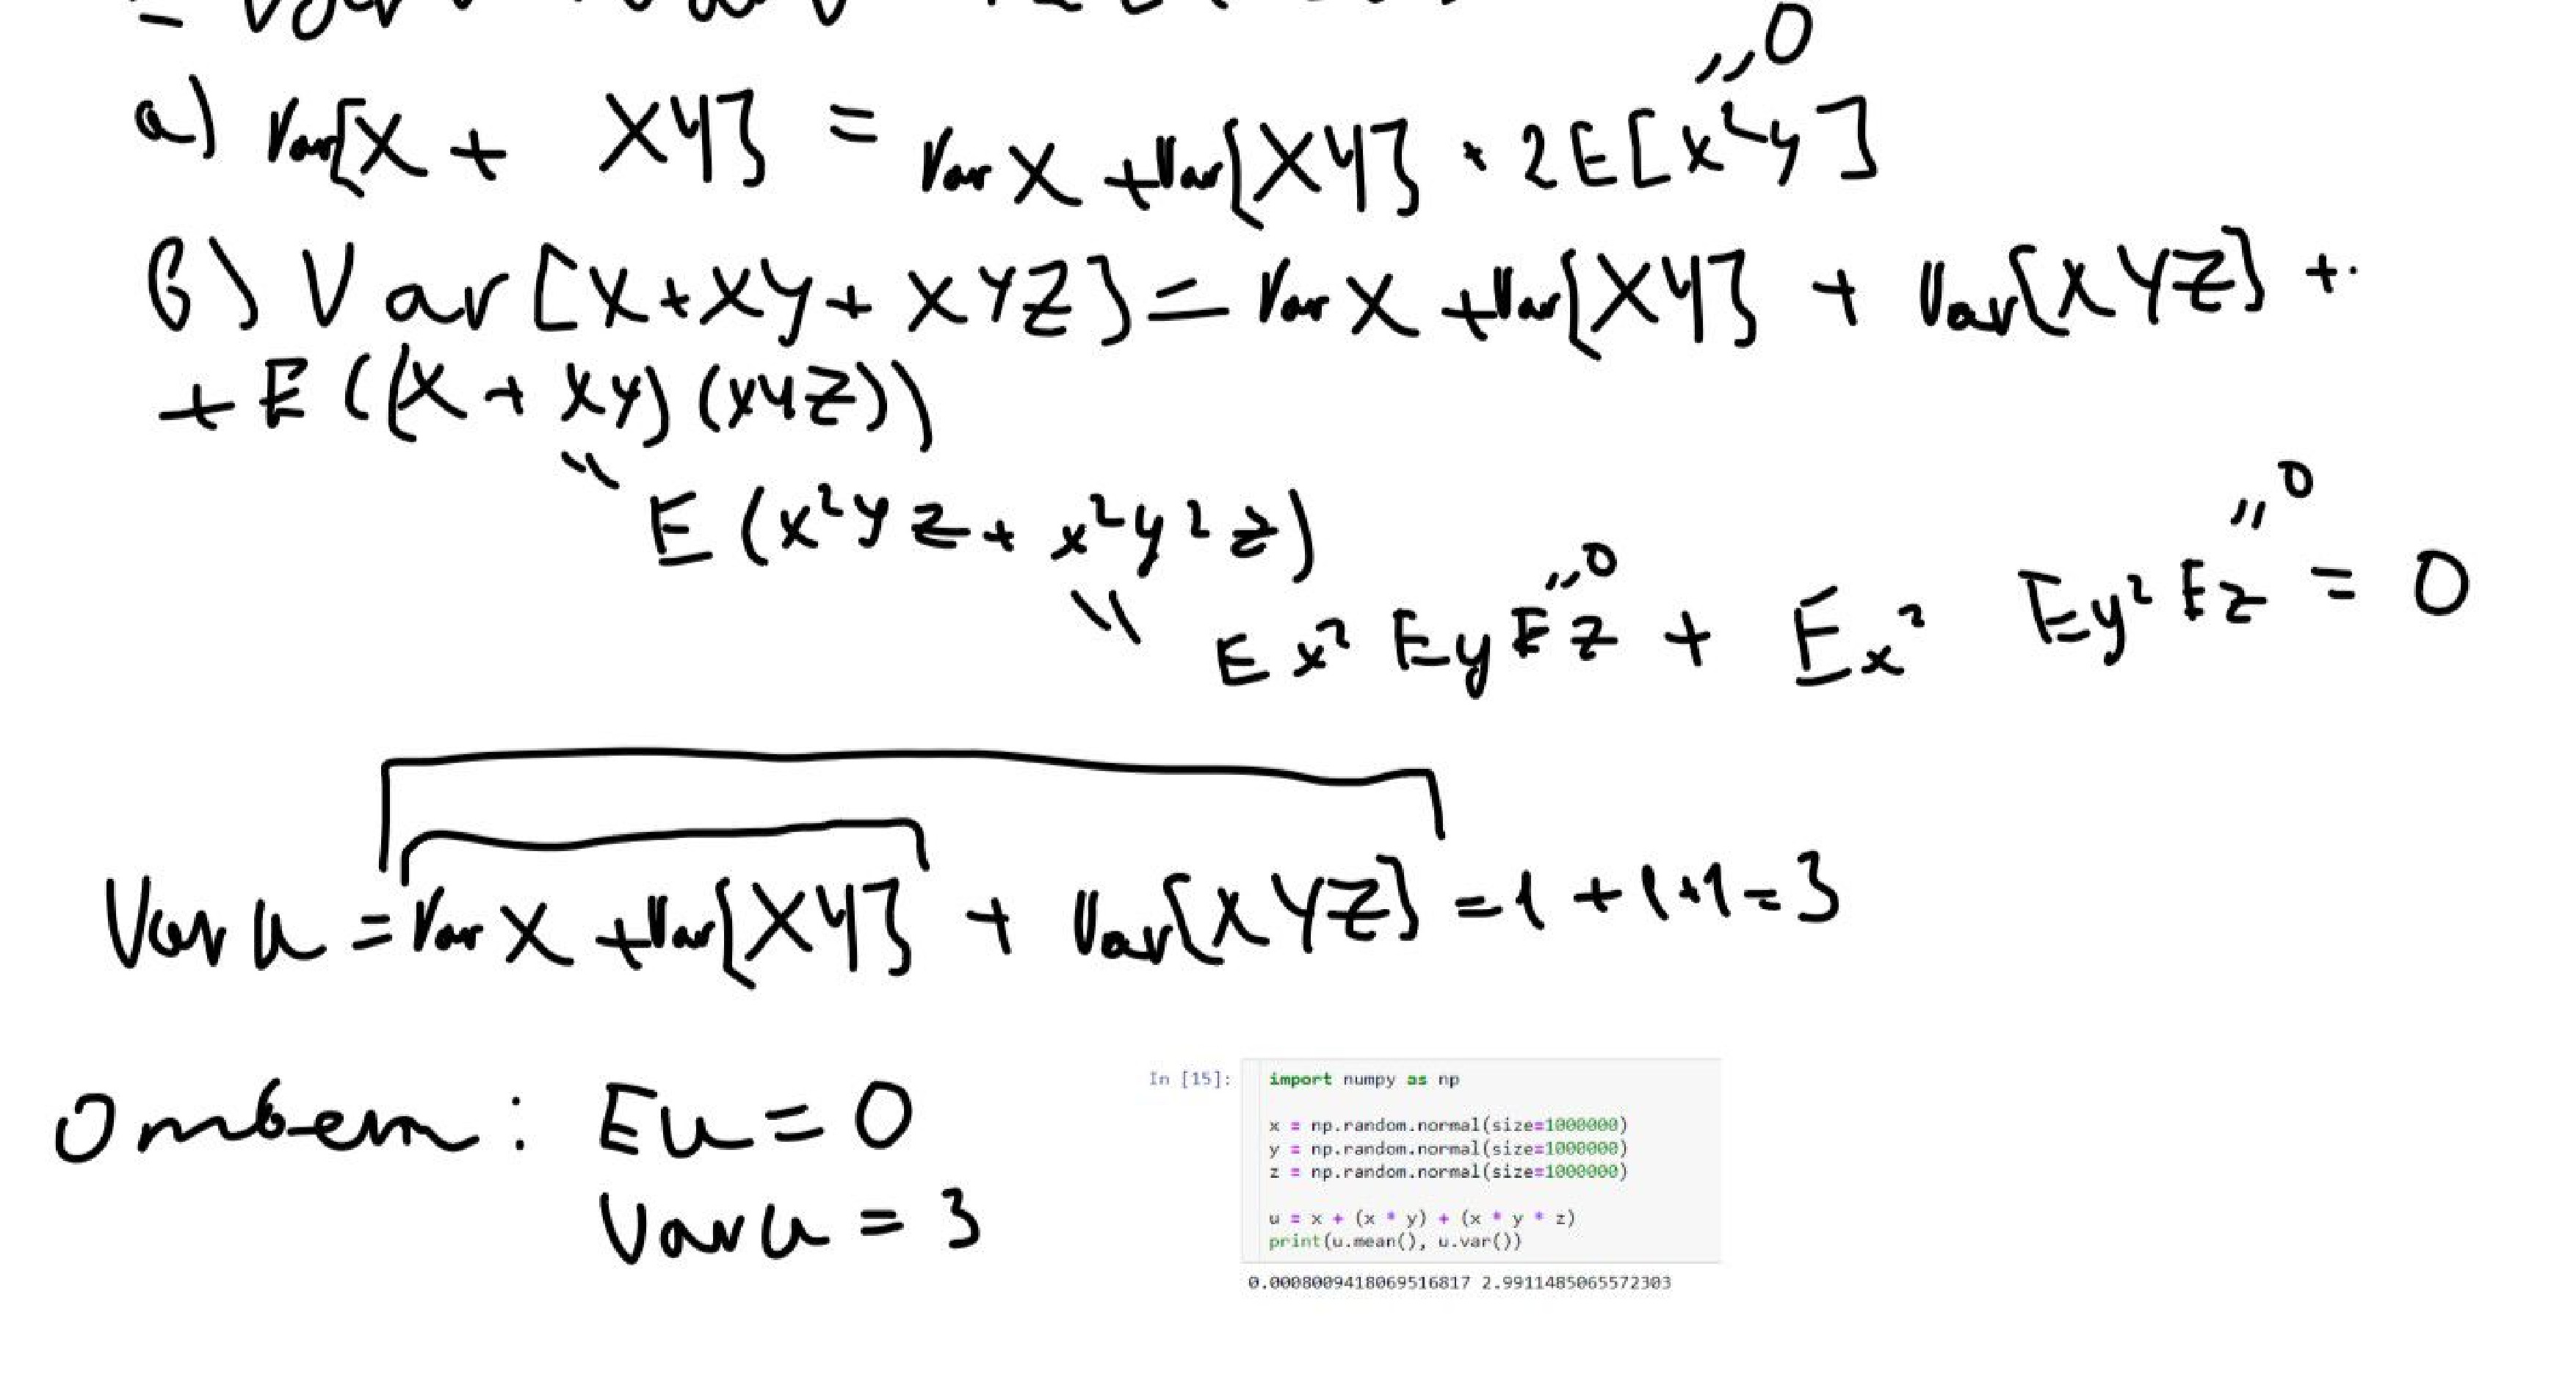 a) Var[X + XY] = Var X + Var[XY] + 2E[x²y]
"0
б) Var[X+XY+XYZ] = Var X + Var[XY] + Var[XYZ] +
+ E((X + XY)(XYZ))
" E(x²yz + x²y²z)
" Ex² Ey Ez + Ex² Ey² Ez = 0
"0 "0
Var u = Var X + Var[XY] + Var[XYZ] = 1 + 1+1 = 3
Ответ: Eu = 0
Var u = 3
In [15]:
import numpy as np
x = np.random.normal(size=1000000)
y = np.random.normal(size=1000000)
z = np.random.normal(size=1000000)
u = x + (x * y) + (x * y * z)
print(u.mean(), u.var())
0.0008009418069516817 2.9911485065572303